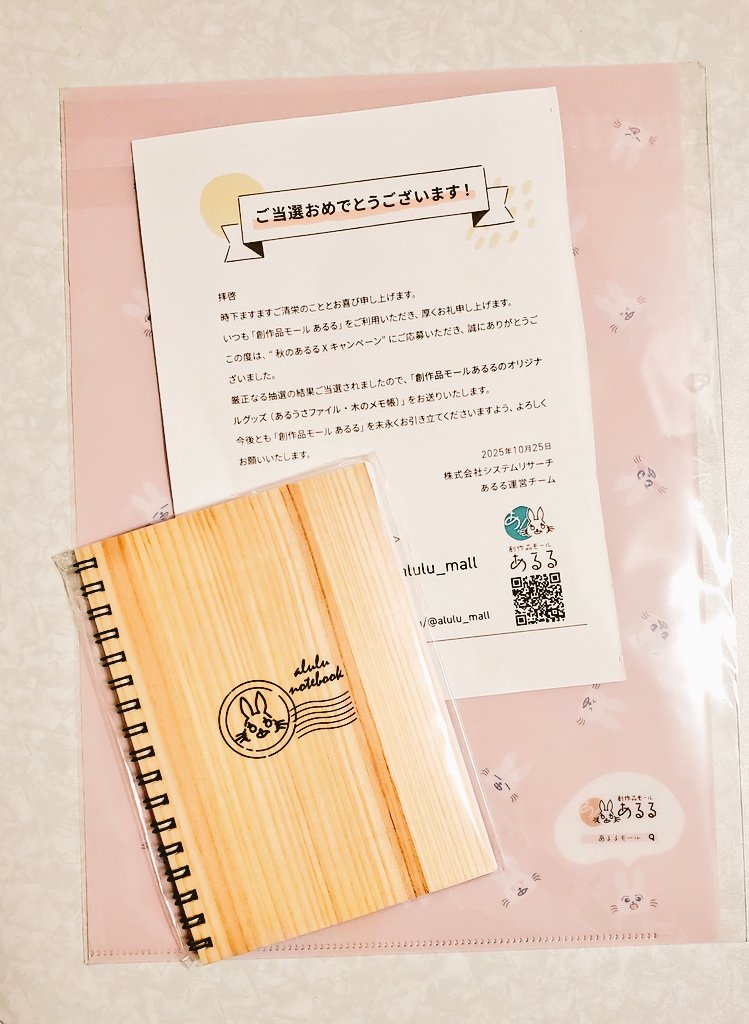 ご当選おめでとうございます！
拝啓
時下ますますご清栄のこととお喜び申し上げます。
いつも「創作品モール あるる」をご利用いただき、厚くお礼申し上げます。
この度は、“ 秋のあるる X キャンペーン”にご応募いただき、誠にありがとうご
ざいました。
厳正なる抽選の結果ご当選されましたので、「創作品モールあるるのオリジナ
ルグッズ（あるうさファイル・木のメモ帳）」をお送りいたします。
今後とも「創作品モール あるる」を末永くお引き立てくださいますよう、よろしく
お願いいたします。
2025年10月25日
株式会社システムリサーチ
あるる運営チーム
創作品モール
あるる
alulu_mall
/@alulu_mall
alulu
notebook
創作品モール
あるる
あるるモール